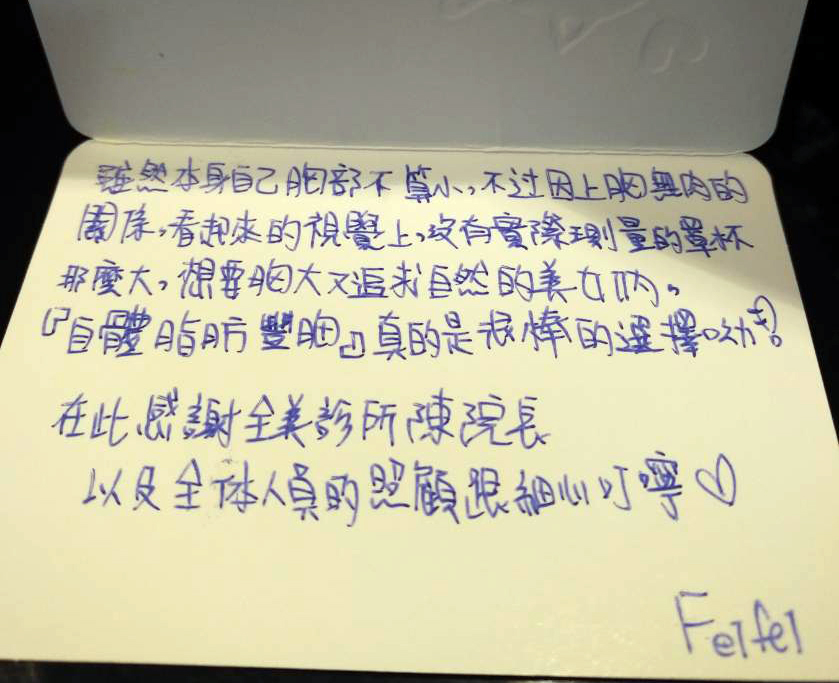 雖然本身自己胸部不算小，不过因上胸無肉的
關係，看起來的視覺上，沒有實際測量的罩杯
那麼大，想要胸大又追求自然的美女們。
『自體脂肪豐胸』真的是很棒的選擇呦!
在此感謝全美診所陳院長
以及全体人員的照顧跟細心叮嚀♡
Feifei